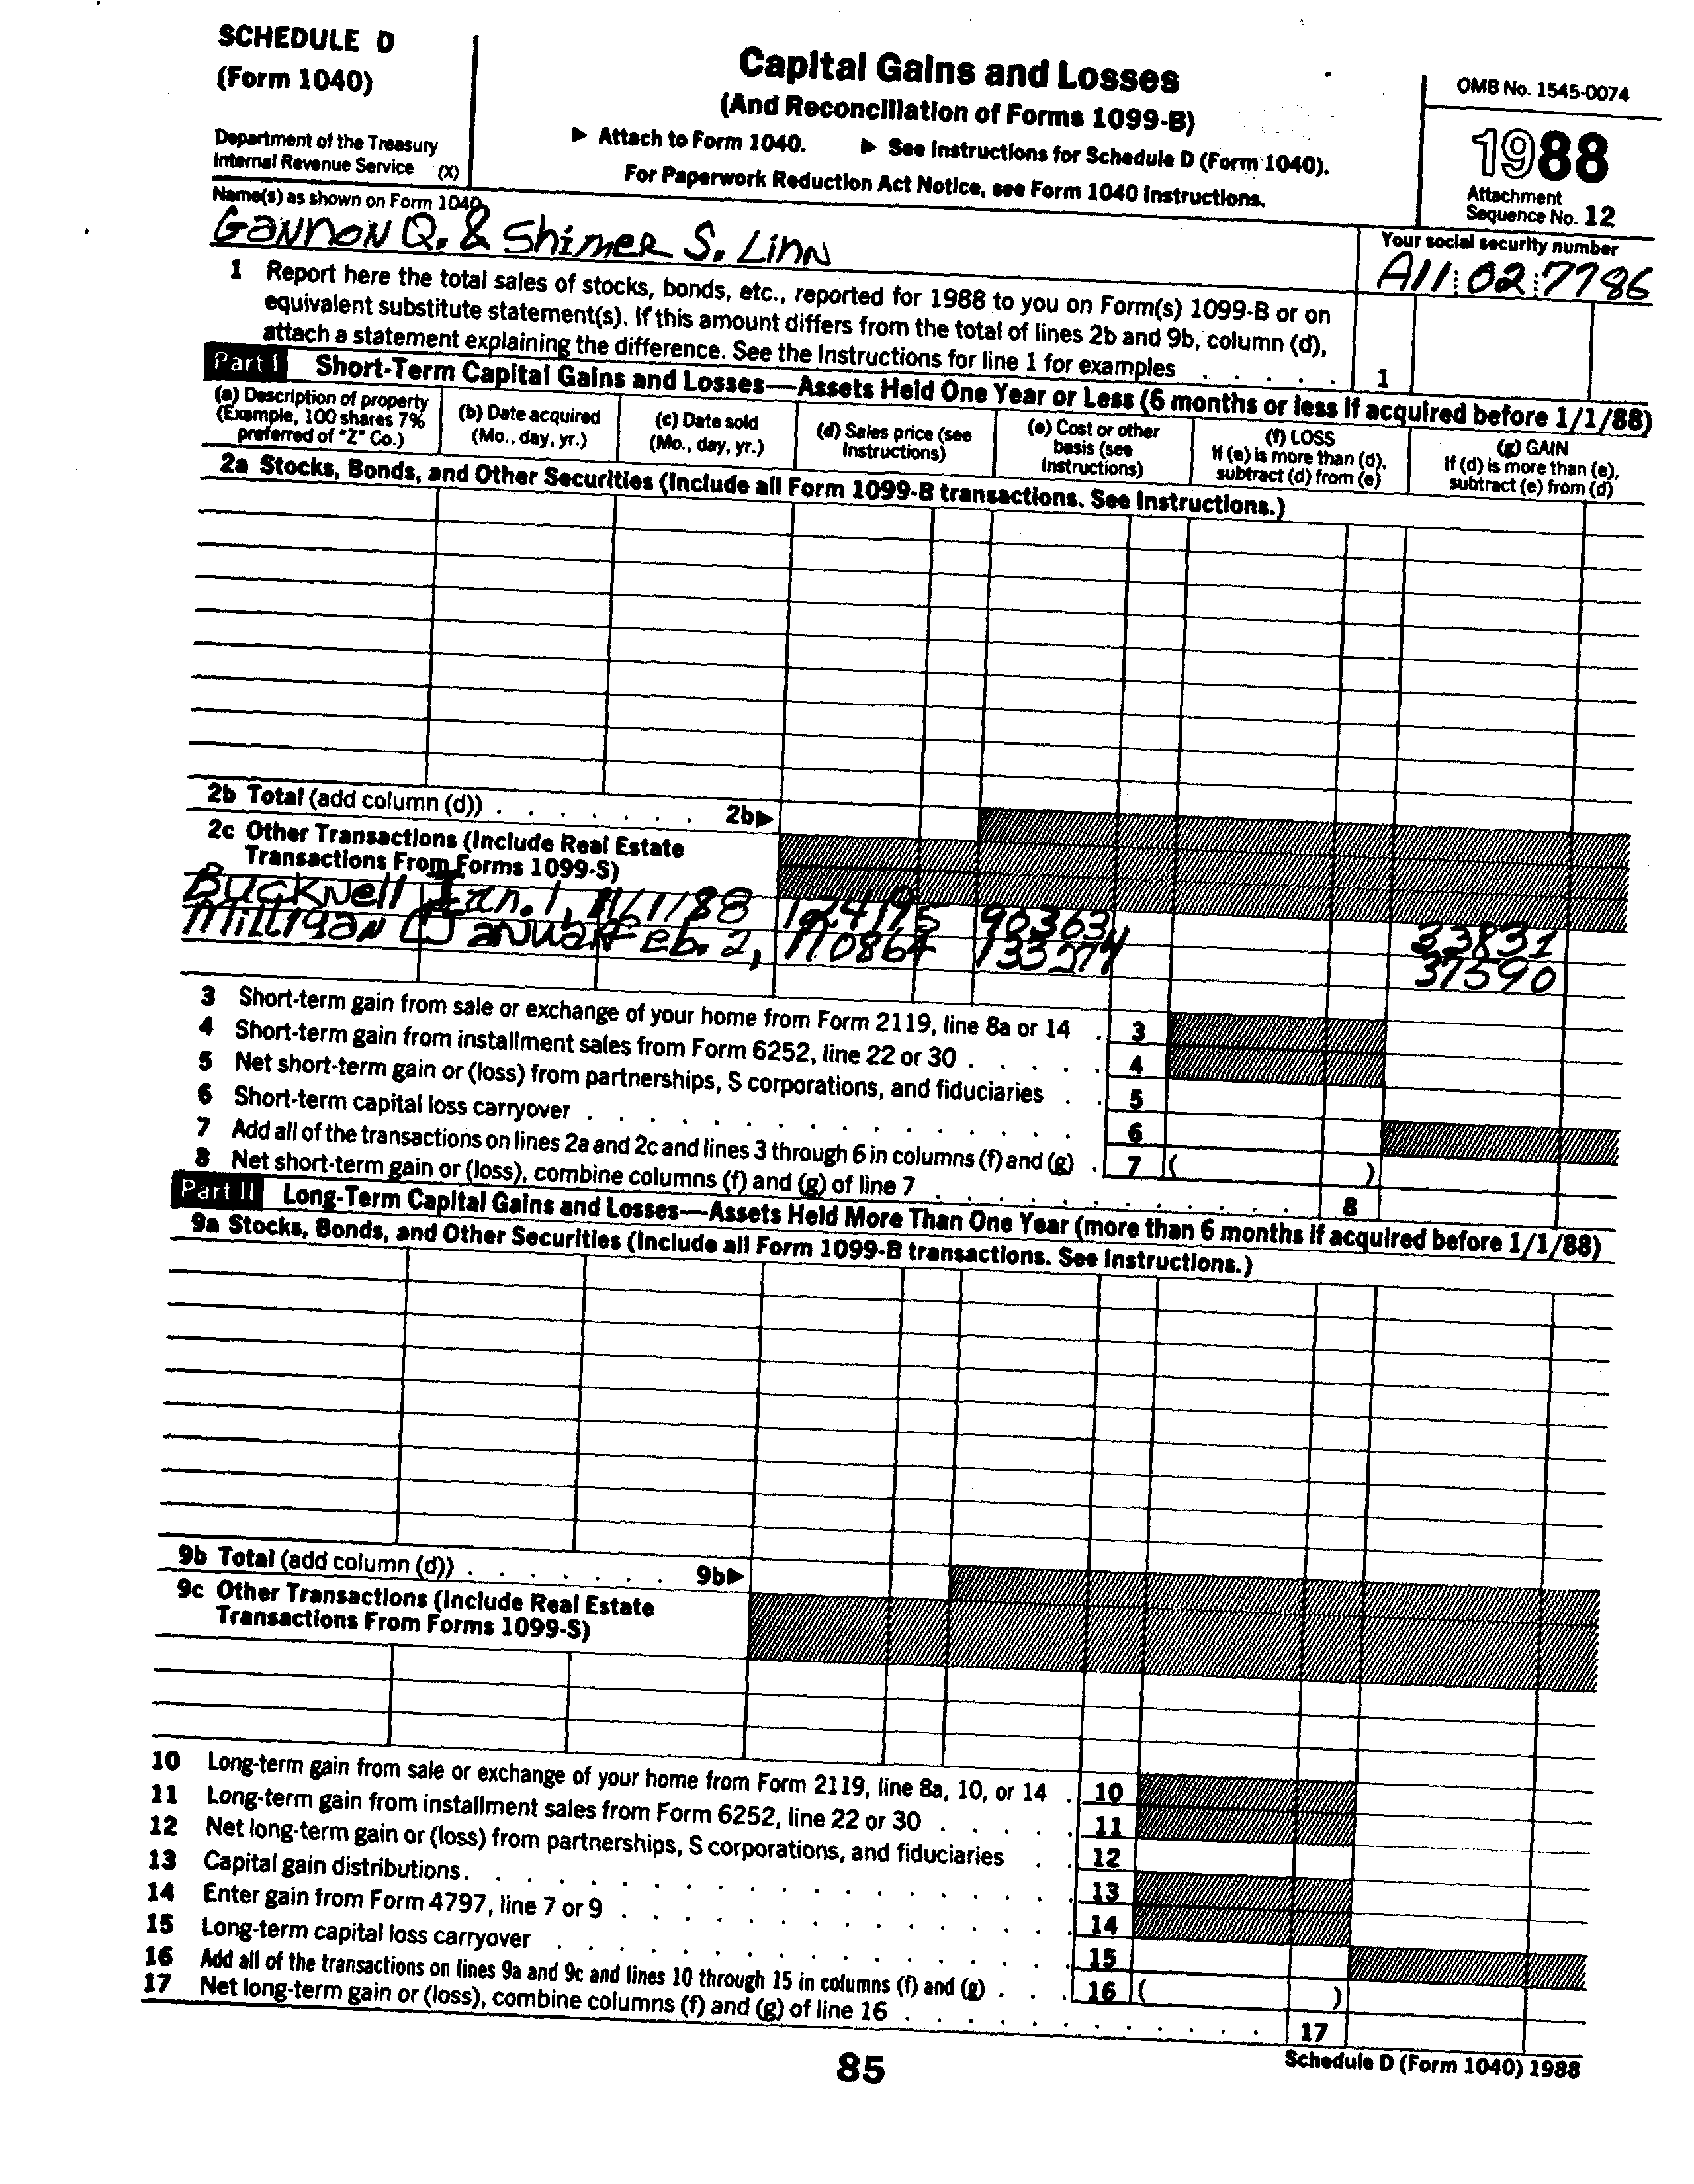 SCHEDULE D
(Form 1040)
Department of the Treasury
Internal Revenue Service (X)
Capital Gains and Losses
(And Reconciliation of Forms 1099-B)
▶ Attach to Form 1040. ▶ See Instructions for Schedule D (Form 1040).
For Paperwork Reduction Act Notice, see Form 1040 Instructions.
OMB No. 1545-0074
1988
Attachment
Sequence No. 12
Name(s) as shown on Form 1040
Gannon Q. & Shimer S. Linn
Your social security number
A11 02 7786
1 Report here the total sales of stocks, bonds, etc., reported for 1988 to you on Form(s) 1099-B or on
equivalent substitute statement(s). If this amount differs from the total of lines 2b and 9b, column (d),
attach a statement explaining the difference. See the Instructions for line 1 for examples . . . . . 1
Part I Short-Term Capital Gains and Losses—Assets Held One Year or Less (6 months or less if acquired before 1/1/88)
(a) Description of property
(Example, 100 shares 7%
preferred of "Z" Co.)
(b) Date acquired
(Mo., day, yr.)
(c) Date sold
(Mo., day, yr.)
(d) Sales price (see
Instructions)
(e) Cost or other
basis (see
Instructions)
(f) LOSS
If (e) is more than (d),
subtract (d) from (e)
(g) GAIN
If (d) is more than (e),
subtract (e) from (d)
2a Stocks, Bonds, and Other Securities (Include all Form 1099-B transactions. See Instructions.)
2b Total (add column (d)) . . . . . . . 2b▶
2c Other Transactions (Include Real Estate
Transactions From Forms 1099-S)
Bucknell Jan. 1, 11/1/88 124195 90363 33831
Milligan C Janua Feb. 2, 170864 133274 37590
3 Short-term gain from sale or exchange of your home from Form 2119, line 8a or 14 . 3
4 Short-term gain from installment sales from Form 6252, line 22 or 30 . . . . . 4
5 Net short-term gain or (loss) from partnerships, S corporations, and fiduciaries . . 5
6 Short-term capital loss carryover . . . . . . . . . . . . . . . 6
7 Add all of the transactions on lines 2a and 2c and lines 3 through 6 in columns (f) and (g) . 7 ( )
8 Net short-term gain or (loss), combine columns (f) and (g) of line 7 . . . . . . . . . . 8
Part II Long-Term Capital Gains and Losses—Assets Held More Than One Year (more than 6 months if acquired before 1/1/88)
9a Stocks, Bonds, and Other Securities (Include all Form 1099-B transactions. See Instructions.)
9b Total (add column (d)) . . . . . . . 9b▶
9c Other Transactions (Include Real Estate
Transactions From Forms 1099-S)
10 Long-term gain from sale or exchange of your home from Form 2119, line 8a, 10, or 14 . 10
11 Long-term gain from installment sales from Form 6252, line 22 or 30 . . . . . 11
12 Net long-term gain or (loss) from partnerships, S corporations, and fiduciaries . . 12
13 Capital gain distributions. . . . . . . . . . . . . . . . . 13
14 Enter gain from Form 4797, line 7 or 9 . . . . . . . . . . . . 14
15 Long-term capital loss carryover . . . . . . . . . . . . . . 15
16 Add all of the transactions on lines 9a and 9c and lines 10 through 15 in columns (f) and (g) . . . 16 ( )
17 Net long-term gain or (loss), combine columns (f) and (g) of line 16 . . . . . . . . . . . 17
85
Schedule D (Form 1040) 1988